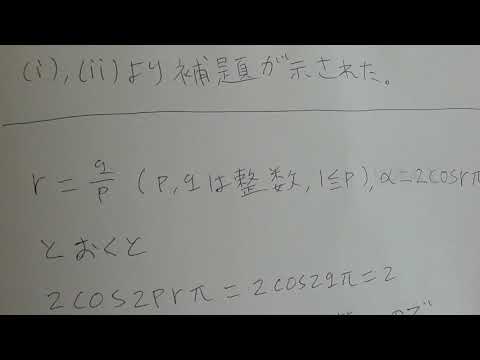 (i), (ii)より補題が示された。
r = q/p (p, qは整数, 1≦p), α=2cosrπ
とおくと
2cos2prπ = 2cos2qπ = 2